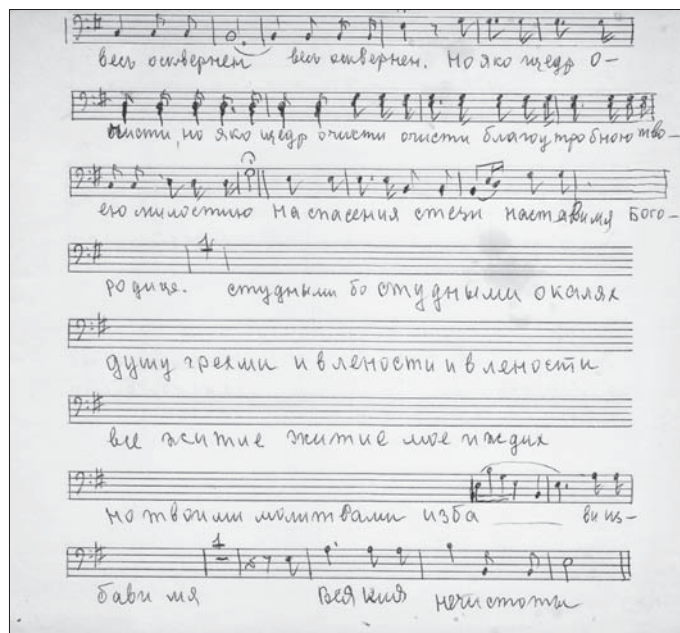 весь осквернен весь осквернен. Но яко щедр о-
чисти, но яко щедр очисти очисти благоутробною тво-
ею милостию на спасения стези наставимя Бого-
1
родице. студными бо студными окалях
душу грехми и влености и влености
все житие житие мое иждих
но твоими молитвами изба ви из-
1
бави мя всякия нечистоты